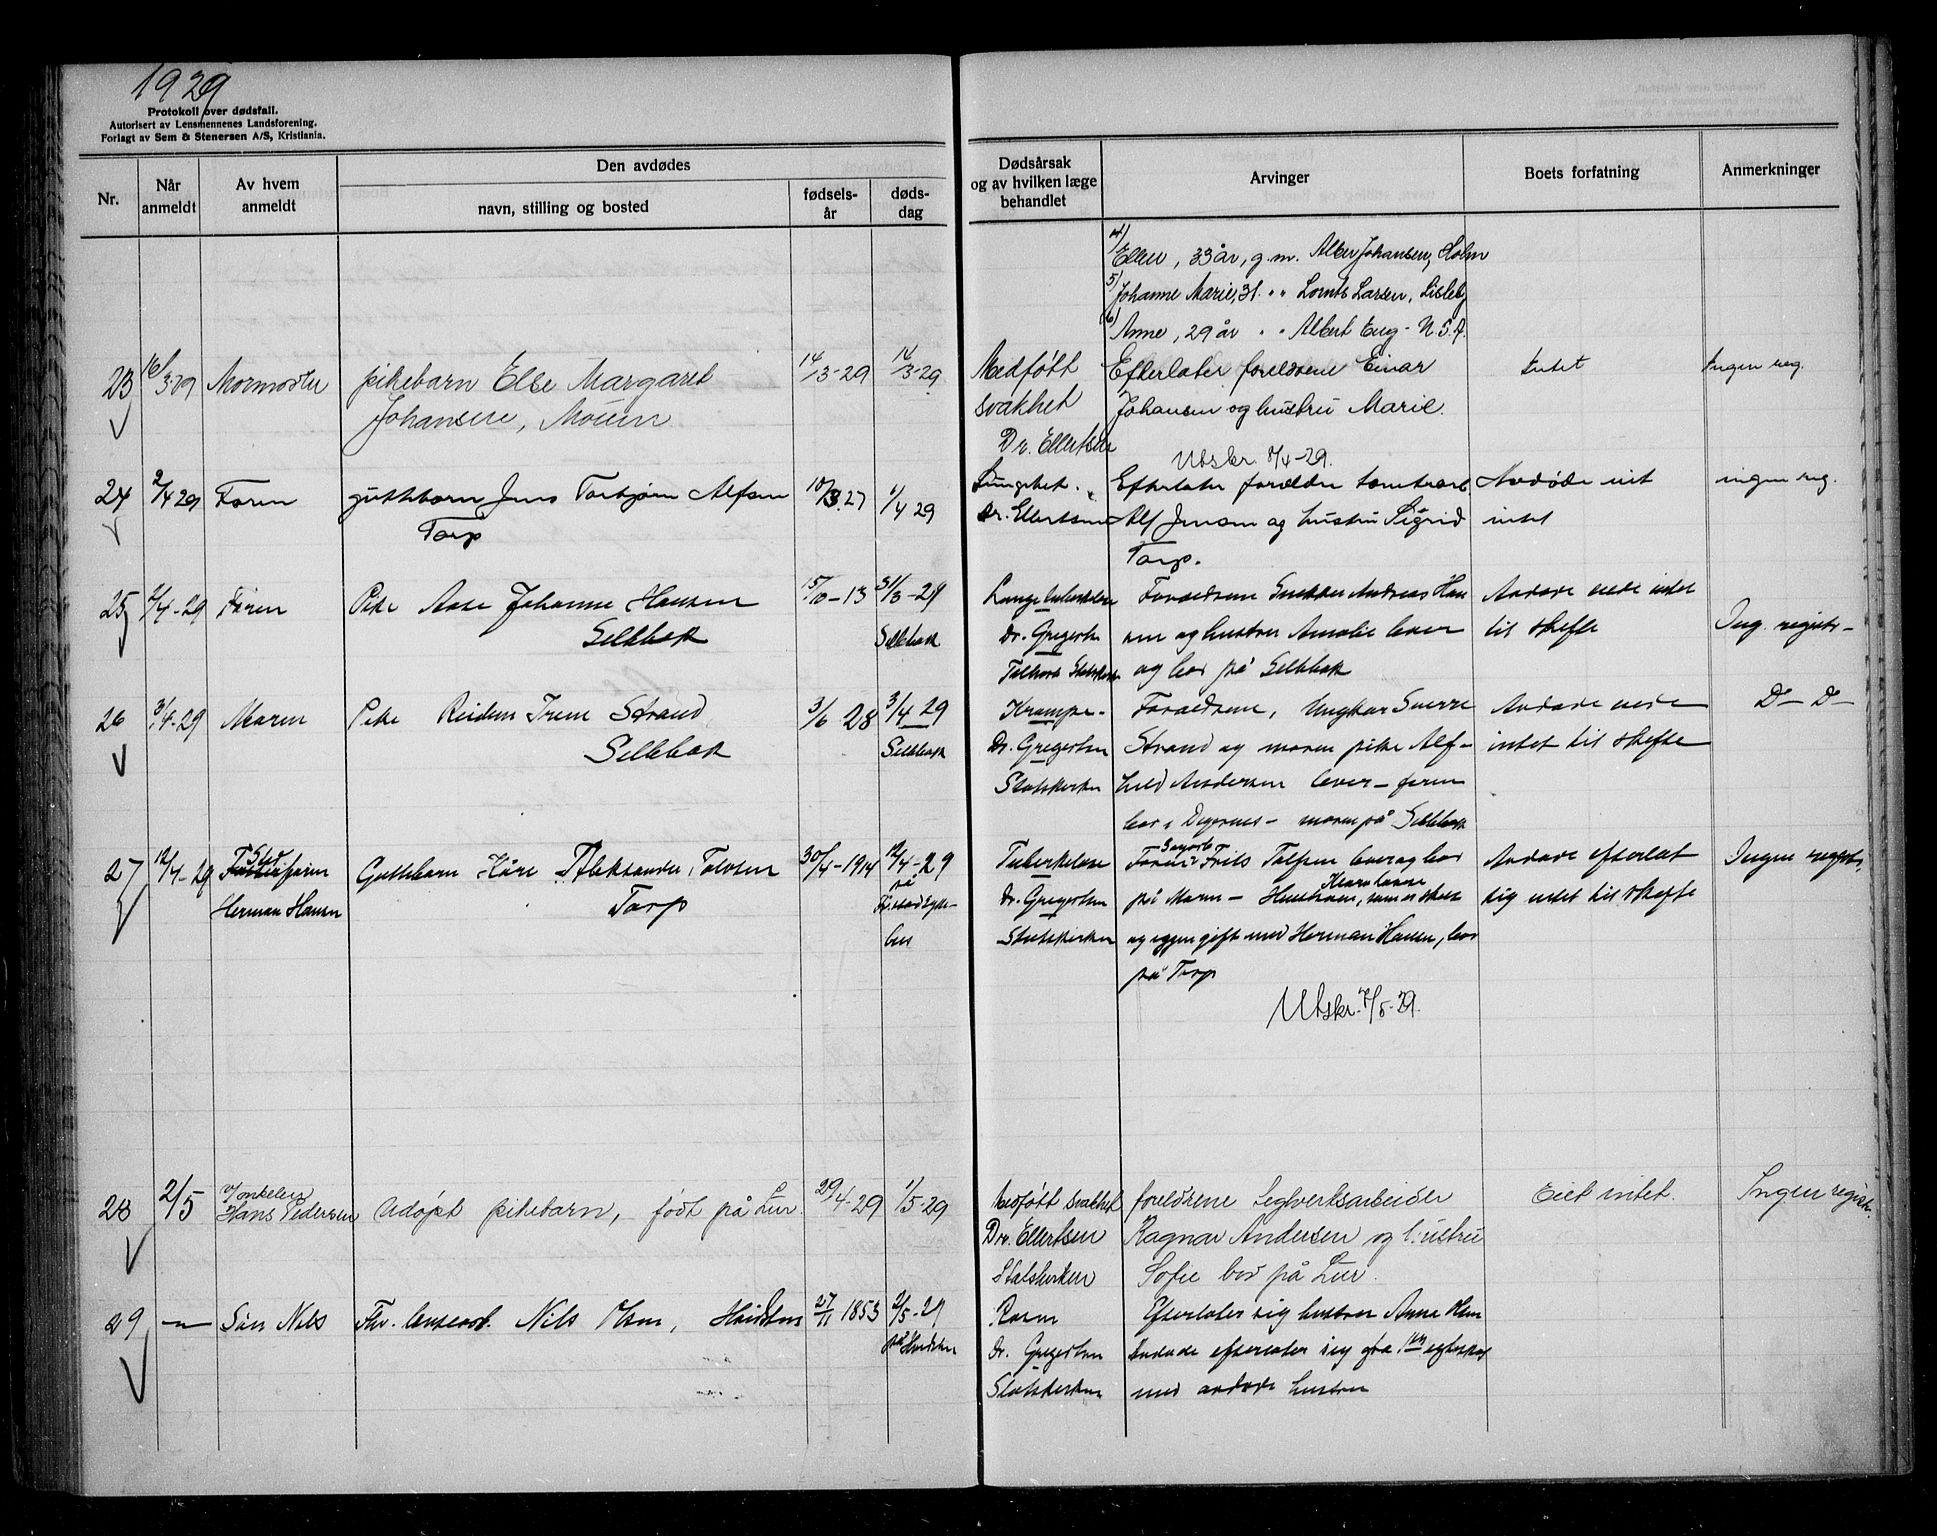 1929
Protokoll over dødsfall.
Autorisert av Lensmennenes Landsforening.
Forlagt av Sem & Stenersen A/S, Kristiania.
Nr.
Når anmeldt
Av hvem anmeldt
Den avdødes
navn, stilling og bosted
fødsels-år
døds-dag
Dødsårsak og av hvilken læge behandlet
Arvinger
Boets forfatning
Anmerkninger
4) Ellen, 33 år, g.m. Johansen, Holm
5) Johanne Marie, 31 " " Larsen, Lisleby
6) Anne, 29 år " " Albert Eng - U.S.A.
23 16/3-29 Mormoder pikebarn Else Margaret 14/3-29 14/3-29 Medføtt Efterlater foreldrene Einar Intet Ingen reg.
Johansen, Moum svakhet Johansen og hustru Marie.
Dr. Ellertsen Utskr. 8/4-29.
24 2/4 29 Faren guttebarn Jens Torbjørn Alfsen 10/3.27 1/4 29 Efterlater foreldre Avdøde eiet ingen reg.
Torp Dr. Ellertsen Alf Jensen og hustru Sigrid intet
Torp.
25 2/4-29 Faren Pike Aase Johanne Hansen 15/10-13 31/3-29 Lungetuberkulose Foreldrene Snekker Andreas Han Avdøde eiede intet
Sellebak Sellebak Dr. Gregertsen sen og hustru Amalie lever til skifte Ing. registr-
Statskirken og bor på Sellebak
26 3/4-29 Moren Pike Reidun Irene Strand 3/6-28 3/4 29 Krampe. Foreldrene, Ungkar Sverre Avdøde eiede D- D-
Sellebak Sellebak Dr. Gregertsen Strand og moren pike Alf- intet til skifte
Statskirken hild Andersen lever - faren
bor i Degernes - moren på Sellebak
27 12/4-29 Sted faren Guttebarn Kåre Aleksander Tolvsen 30/4-1914 12/4-29 Tuberkulose Faren Frits Tolfsen lever og bor Avdøde efterlot Ingen registr.
Herman Hansen Torp på Dr. Gregertsen på Moum - Hustruen, som er skilt sig intet til skifte
hus Statskirken og igjen gift med Herman Hansen, bor
på Torp
Utskr. 7/5-29.
28 2/5 v/onkelen Hans Pedersen Udøpt pikebarn, født på Lur. 29/4-29 1/5-29 Medføtt svakhet foreldrene Teglverksarbeider Eiet intet. Ingen registr.
Dr. Ellertsen Ragnar Andersen og hustru
Statskirken Sofie bor på Lur.
29 -"- Søn Nils Fhv. Nils Olsen, 27/11 1853 2/5-29 Efterlater sig hustru Anna Olsen
på Dr. Gregertsen Avdøde efterlater sig fra 1ste egteskap
Statskirken med avdøde hustru